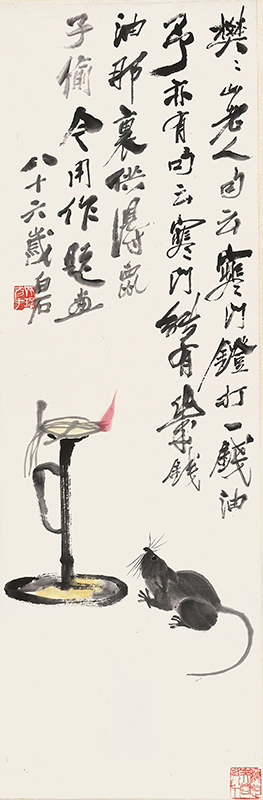 樊〻山老人句云寒門鐙打一錢油
予亦有句云寒門能有幾錢
油那裏供得鼠
子偷今用作題画
八十六歲白石